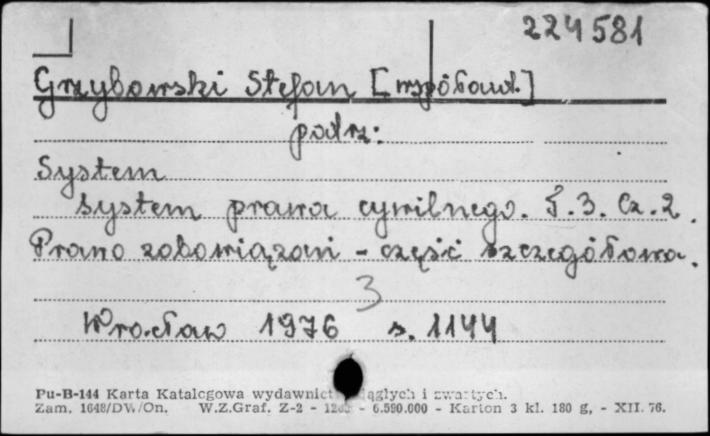 224581
Grzybowski Stefan [współaut.]
podrz:
System
System prawa cywilnego. T.3. Cz.2.
Prawo zobowiązań - część szczegółowa.
3
Wrocław 1976 s. 1144
Pu-B-144 Karta Katalogowa wydawnict ciągłych i zwartych.
Zam. 1648/DW/On. W.Z.Graf. Z-2 - - 6.590.000 - Karton 3 kl. 180 g, - XII. 76.